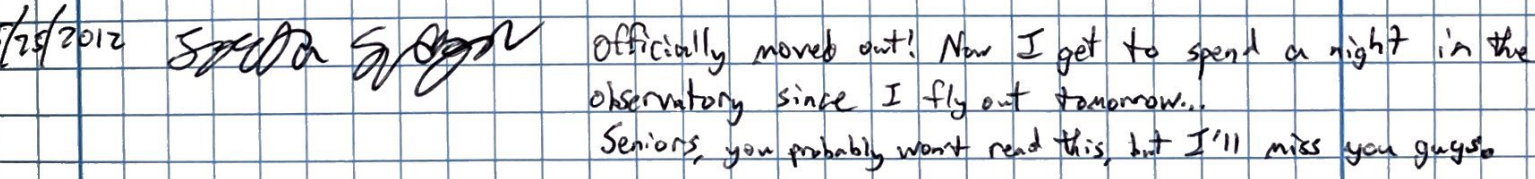 /25/2012 Officially moved out! Now I get to spend a night in the
observatory since I fly out tomorrow...
Seniors, you probably won't read this, but I'll miss you guys.